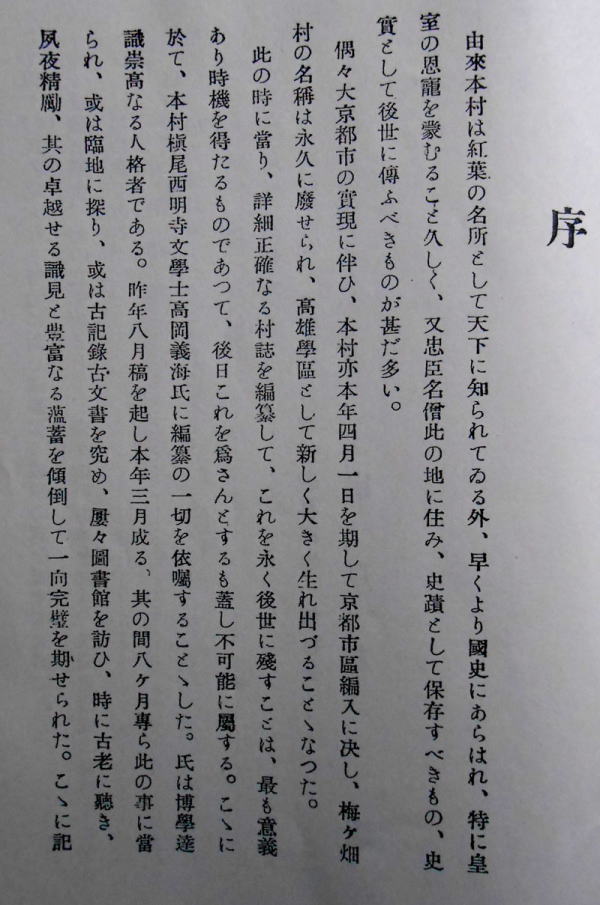 序
由來本村は紅葉の名所として天下に知られてゐる外、早くより國史にあらはれ、特に皇
室の恩寵を蒙むること久しく、又忠臣名僧此の地に住み、史蹟として保存すべきもの、史
實として後世に傳ふべきものが甚だ多い。
偶々大京都市の實現に伴ひ、本村亦本年四月一日を期して京都市區編入に決し、梅ヶ畑
村の名稱は永久に廢せられ、高雄學區として新しく大きく生れ出づることゝなつた。
此の時に當り、詳細正確なる村誌を編纂して、これを永く後世に殘すことは、最も意義
あり時機を得たるものであつて、後日これを爲さんとするも蓋し不可能に屬する。こゝに
於て、本村槇尾西明寺文學士高岡義海氏に編纂の一切を依囑することゝした。氏は博學達
識崇高なる人格者である。昨年八月稿を起し本年三月成る、其の間八ケ月專ら此の事に當
られ、或は臨地に探り、或は古記錄古文書を究め、屢々圖書館を訪ひ、時に古老に聽き、
夙夜精勵、其の卓越せる識見と豊富なる薀蓄を傾倒して一向完璧を期せられた。こゝに記